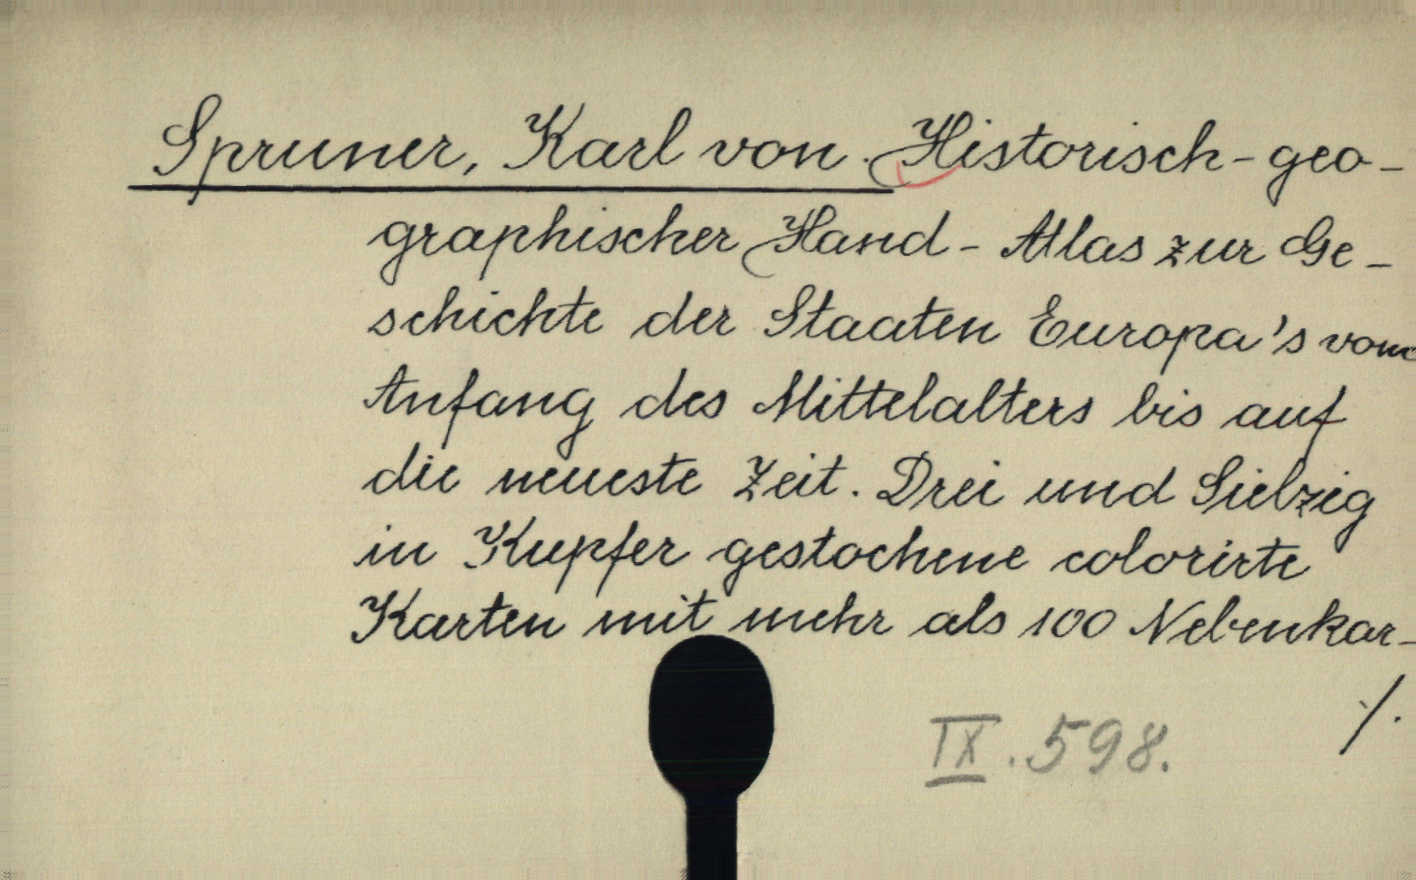 Spruner, Karl von. Historisch-geo-
graphischer Hand-Atlas zur Ge-
schichte der Staaten Europa's vom
Anfang des Mittelalters bis auf
die neueste Zeit. Drei und Siebzig
in Kupfer gestochene colorirte
Karten mit mehr als 100 Nebenkar-
./.
IX.598.